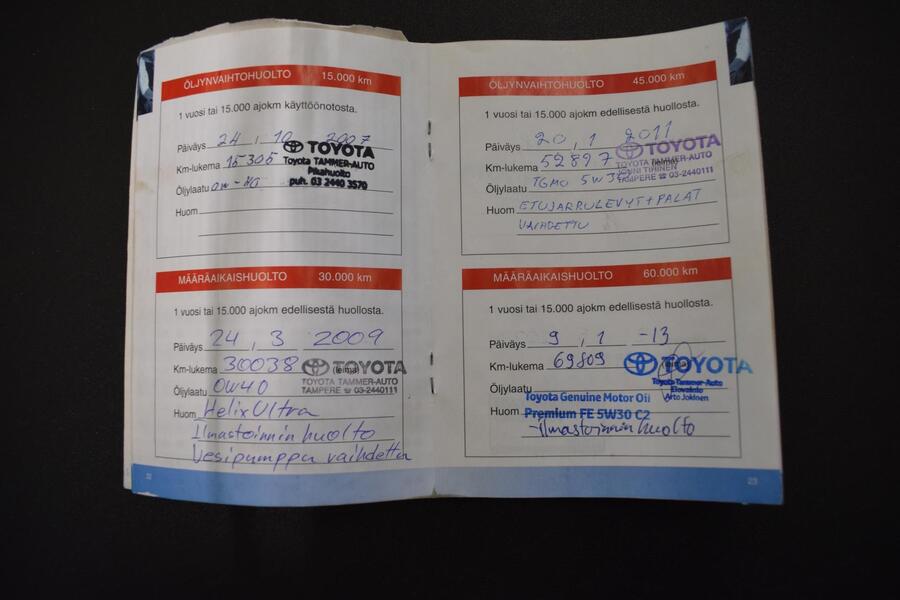 ÖLJYNVAIHTOHUOLTO 15.000 km
1 vuosi tai 15.000 ajokm käyttöönotosta.
Päiväys 24 , 10 2007
Km-lukema 15305
Öljylaatu 0W-40
Huom
TOYOTA
Toyota TAMMER-AUTO
Pikahuolto
puh. 03 2440 3570
MÄÄRÄAIKAISHUOLTO 30.000 km
1 vuosi tai 15.000 ajokm edellisestä huollosta.
Päiväys 24 , 3 2009
Km-lukema 30038
Öljylaatu 0W40
Huom Helix Ultra
Ilmastoinnin huolto
Vesipumppu vaihdettu
(leima)
TOYOTA
TOYOTA TAMMER-AUTO
TAMPERE ☎ 03-2440111
22
ÖLJYNVAIHTOHUOLTO 45.000 km
1 vuosi tai 15.000 ajokm edellisestä huollosta.
Päiväys 20 , 1 2011
Km-lukema 52897
Öljylaatu TGMO 5W30
Huom ETUJARRULEVYT + PALAT
VAIHDETTU
(leima)
TOYOTA
TOYOTA TAMMER-AUTO
TAMPERE ☎ 03-2440111
MÄÄRÄAIKAISHUOLTO 60.000 km
1 vuosi tai 15.000 ajokm edellisestä huollosta.
Päiväys 9 , 1 -13
Km-lukema 69809
Öljylaatu
Toyota Genuine Motor Oil
Huom Premium FE 5W30 C2
-ilmastoinnin huolto
(leima)
TOYOTA
Toyota Tammer-Auto
Elovainio
Arto Jokinen
23